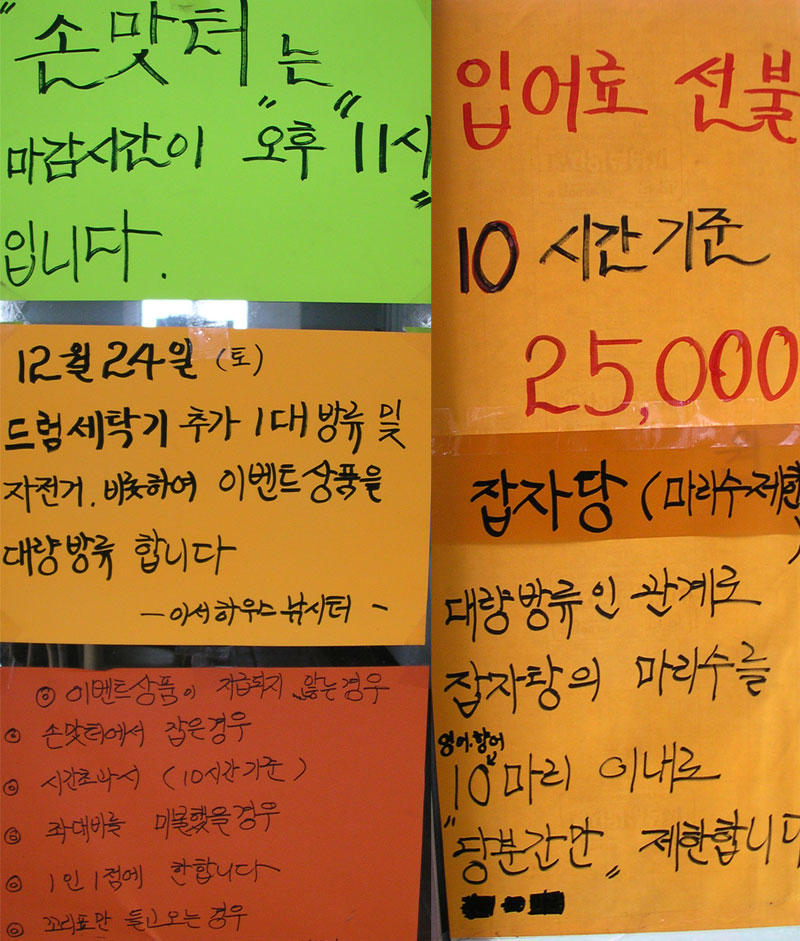 "손맛터"는
마감시간이 "오후 11시"
입니다.
12월 24일 (토)
드럼세탁기 추가 1대 방류 및
자전거, 비롯하여 이벤트상품을
대량방류 합니다
- 아서하우스 낚시터 -
◎ 이벤트상품이 지급되지 않는경우
◎ 손맛터에서 잡은경우
◎ 시간초과시 (10시간기준)
◎ 좌대비를 미불했을경우
◎ 1인 1점에 한합니다
◎ 꼬리표만 들고오는경우
입어료 선불
10 시간기준
25,000
잡자탕 (마리수제한)
대량방류인 관계로
잡자탕의 마리수를
잉어.향어
10마리 이내로
"당분간만" 제한합니다